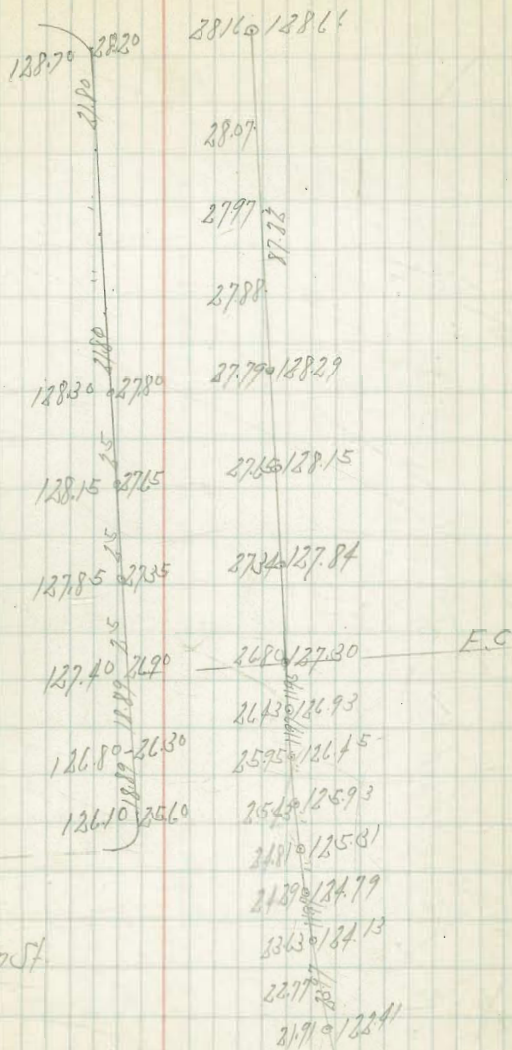 128.70 28.20
21.80
21.80
128.30 27.80
25
128.15 27.65
25
127.85 27.35
25
127.40 26.90
18.89
126.80 26.30
18.89
126.10 25.60
28.16 128.66
28.07
27.97
87.22
27.88
27.79 128.29
27.65 128.15
27.34 127.84
26.80 127.30 E.C
26.43 126.93
25.95 126.45
25.43 125.93
24.81 125.31
24.29 124.79
23.63 124.13
22.77
21.91 122.41